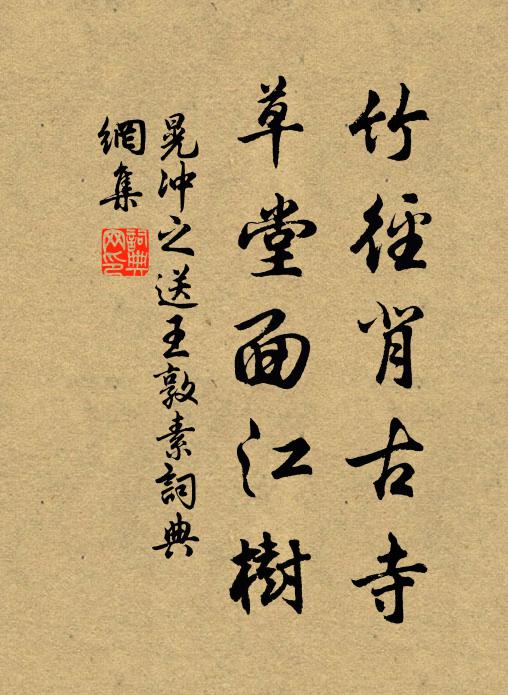 竹徑背古寺
草堂面江樹
晁沖之送王敦素詞典
網集
詞典網印